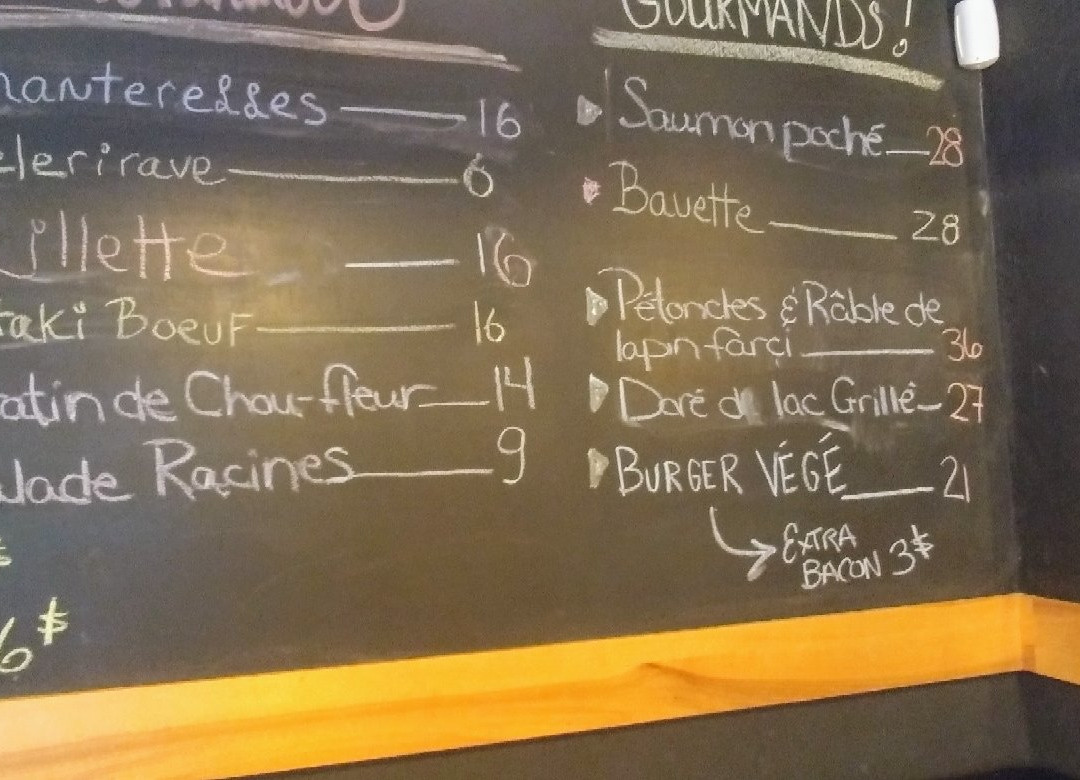 hanterelles 16
elerirave 6
illette 16
taki Boeuf 16
atin de Chou-fleur 14
alade Racines 9
6$
GOURMANDS!
Saumon poché 28
Bavette 28
Pétoncles & Râble de
lapin farçi 36
Doré de lac Grillé 27
BURGER VÉGÉ 21
EXTRA
BACON 3$